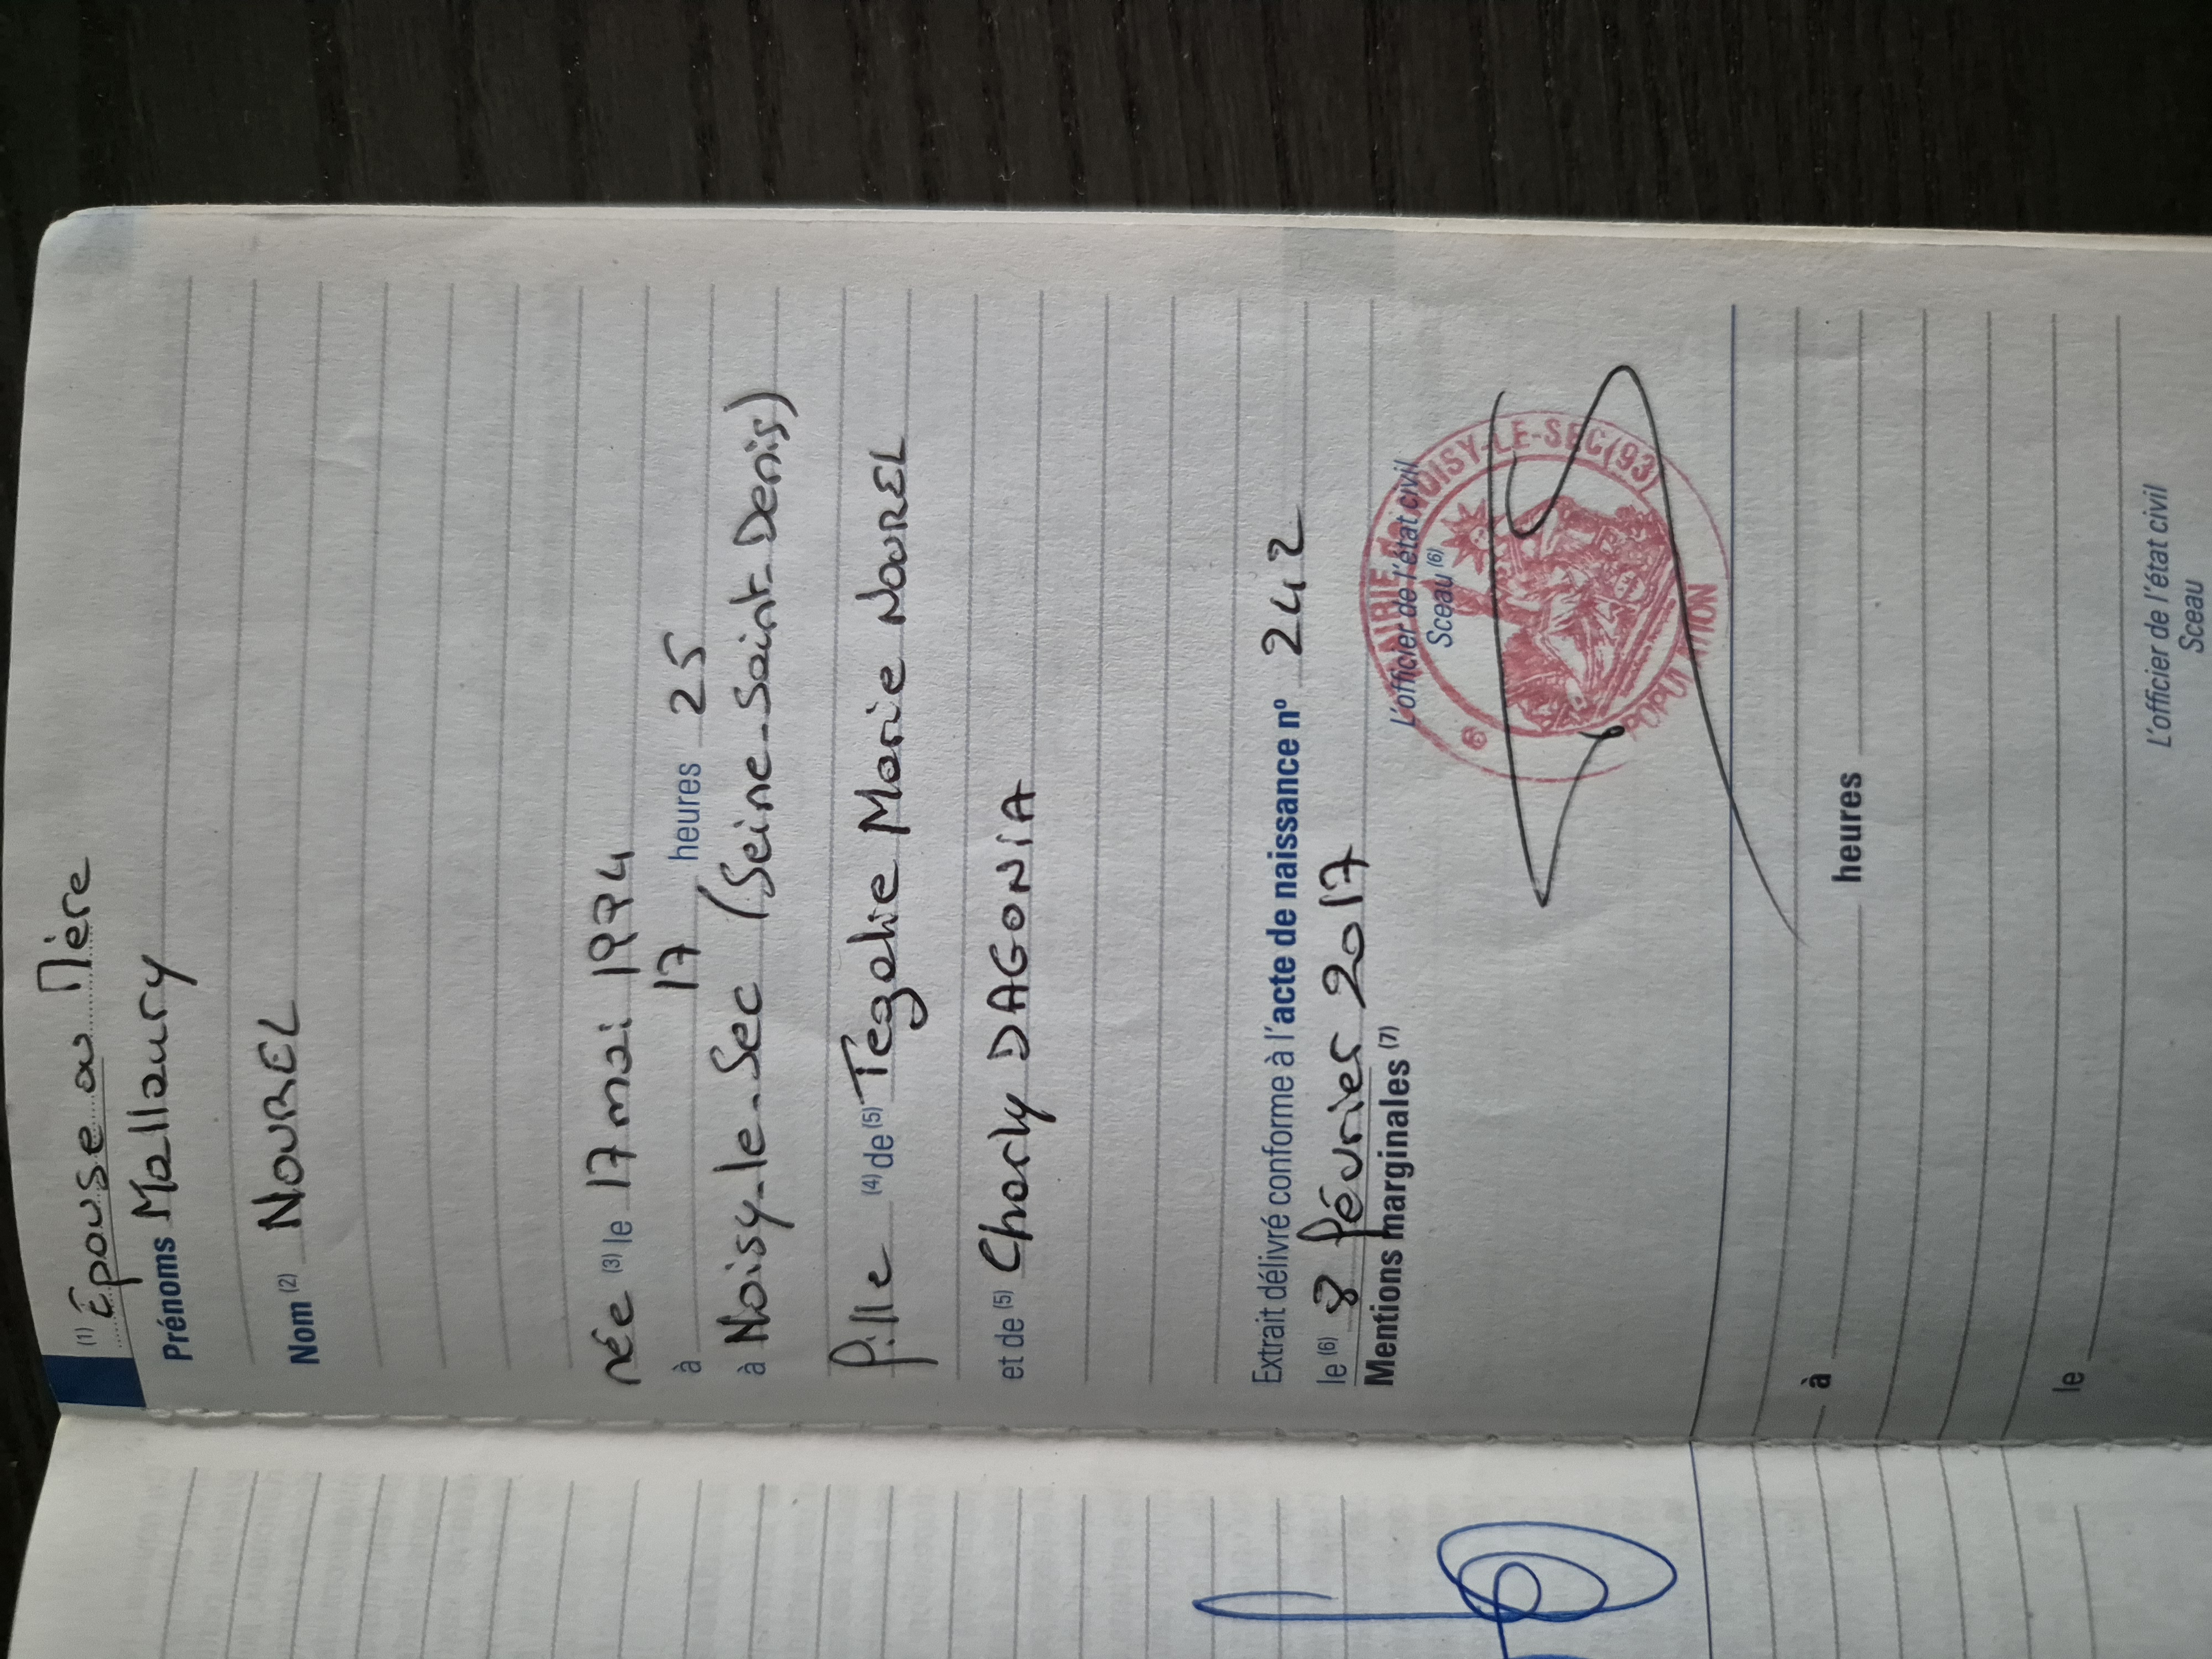 (1) Épouse ou Mère
Prénoms Mallaury
Nom (2) NOUREL
née (3) le 17 mai 1994
à 17 heures 25
à Noisy-le-Sec (Seine-Saint-Denis)
fille (4) de (5) Tegalie Marie NOUREL
et de (5) Charly DAGONIA
Extrait délivré conforme à l'acte de naissance nº 242
le (6) 8 février 2017
Mentions marginales (7)
L'officier de l'état civil
Sceau (6)
MAIRIE DE NOISY-LE-SEC (93)
POPULATION
à heures
le
L'officier de l'état civil
Sceau